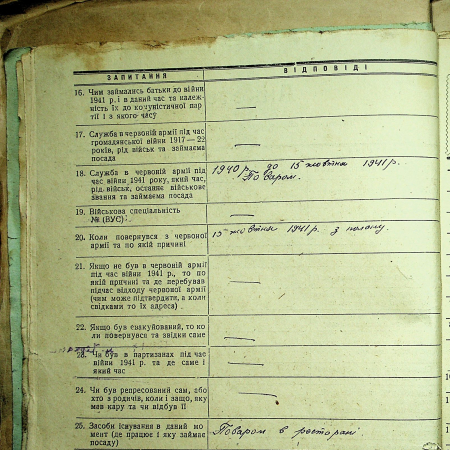 ЗАПИТАННЯ ВІДПОВІДІ
16. Чим займались батьки до війни
1941 р. і в даний час та належ-
ність їх до комуністичної пар-
тії і з якого часу —
17. Служба в червоній армії під час
громадянської війни 1917—22
років, рід військ та займаєма
посада —
18. Служба в червоній армії під
час війни 1941 року, який час,
рід військ, останнє військове
звання та займаєма посада
1940 р. до 15 жовтня 1941 р.
Поваром.
19. Військова спеціальність
№ (ВУС): —
20. Коли повернувся з червоної
армії та по якій причині
15 жовтня 1941 р. з полону.
21. Якщо не був в червоній армії
під час війни 1941 р., то по
якій причині та де перебував
підчас відходу червоної армії
(чим може підтвердити, а коли
свідками то їх адреса) —
22. Якщо був евакуйований, то ко-
ли повернувся та звідки саме —
23. Чи був в партизанах під час
війни 1941 р. та де саме і
який час —
24. Чи був репресований сам, або
хто з родичів, коли і защо, яку
мав кару та чи відбув її —
25. Засоби існування в даний мо-
мент (де працює і яку займає
посаду)
Поваром в ресторані.